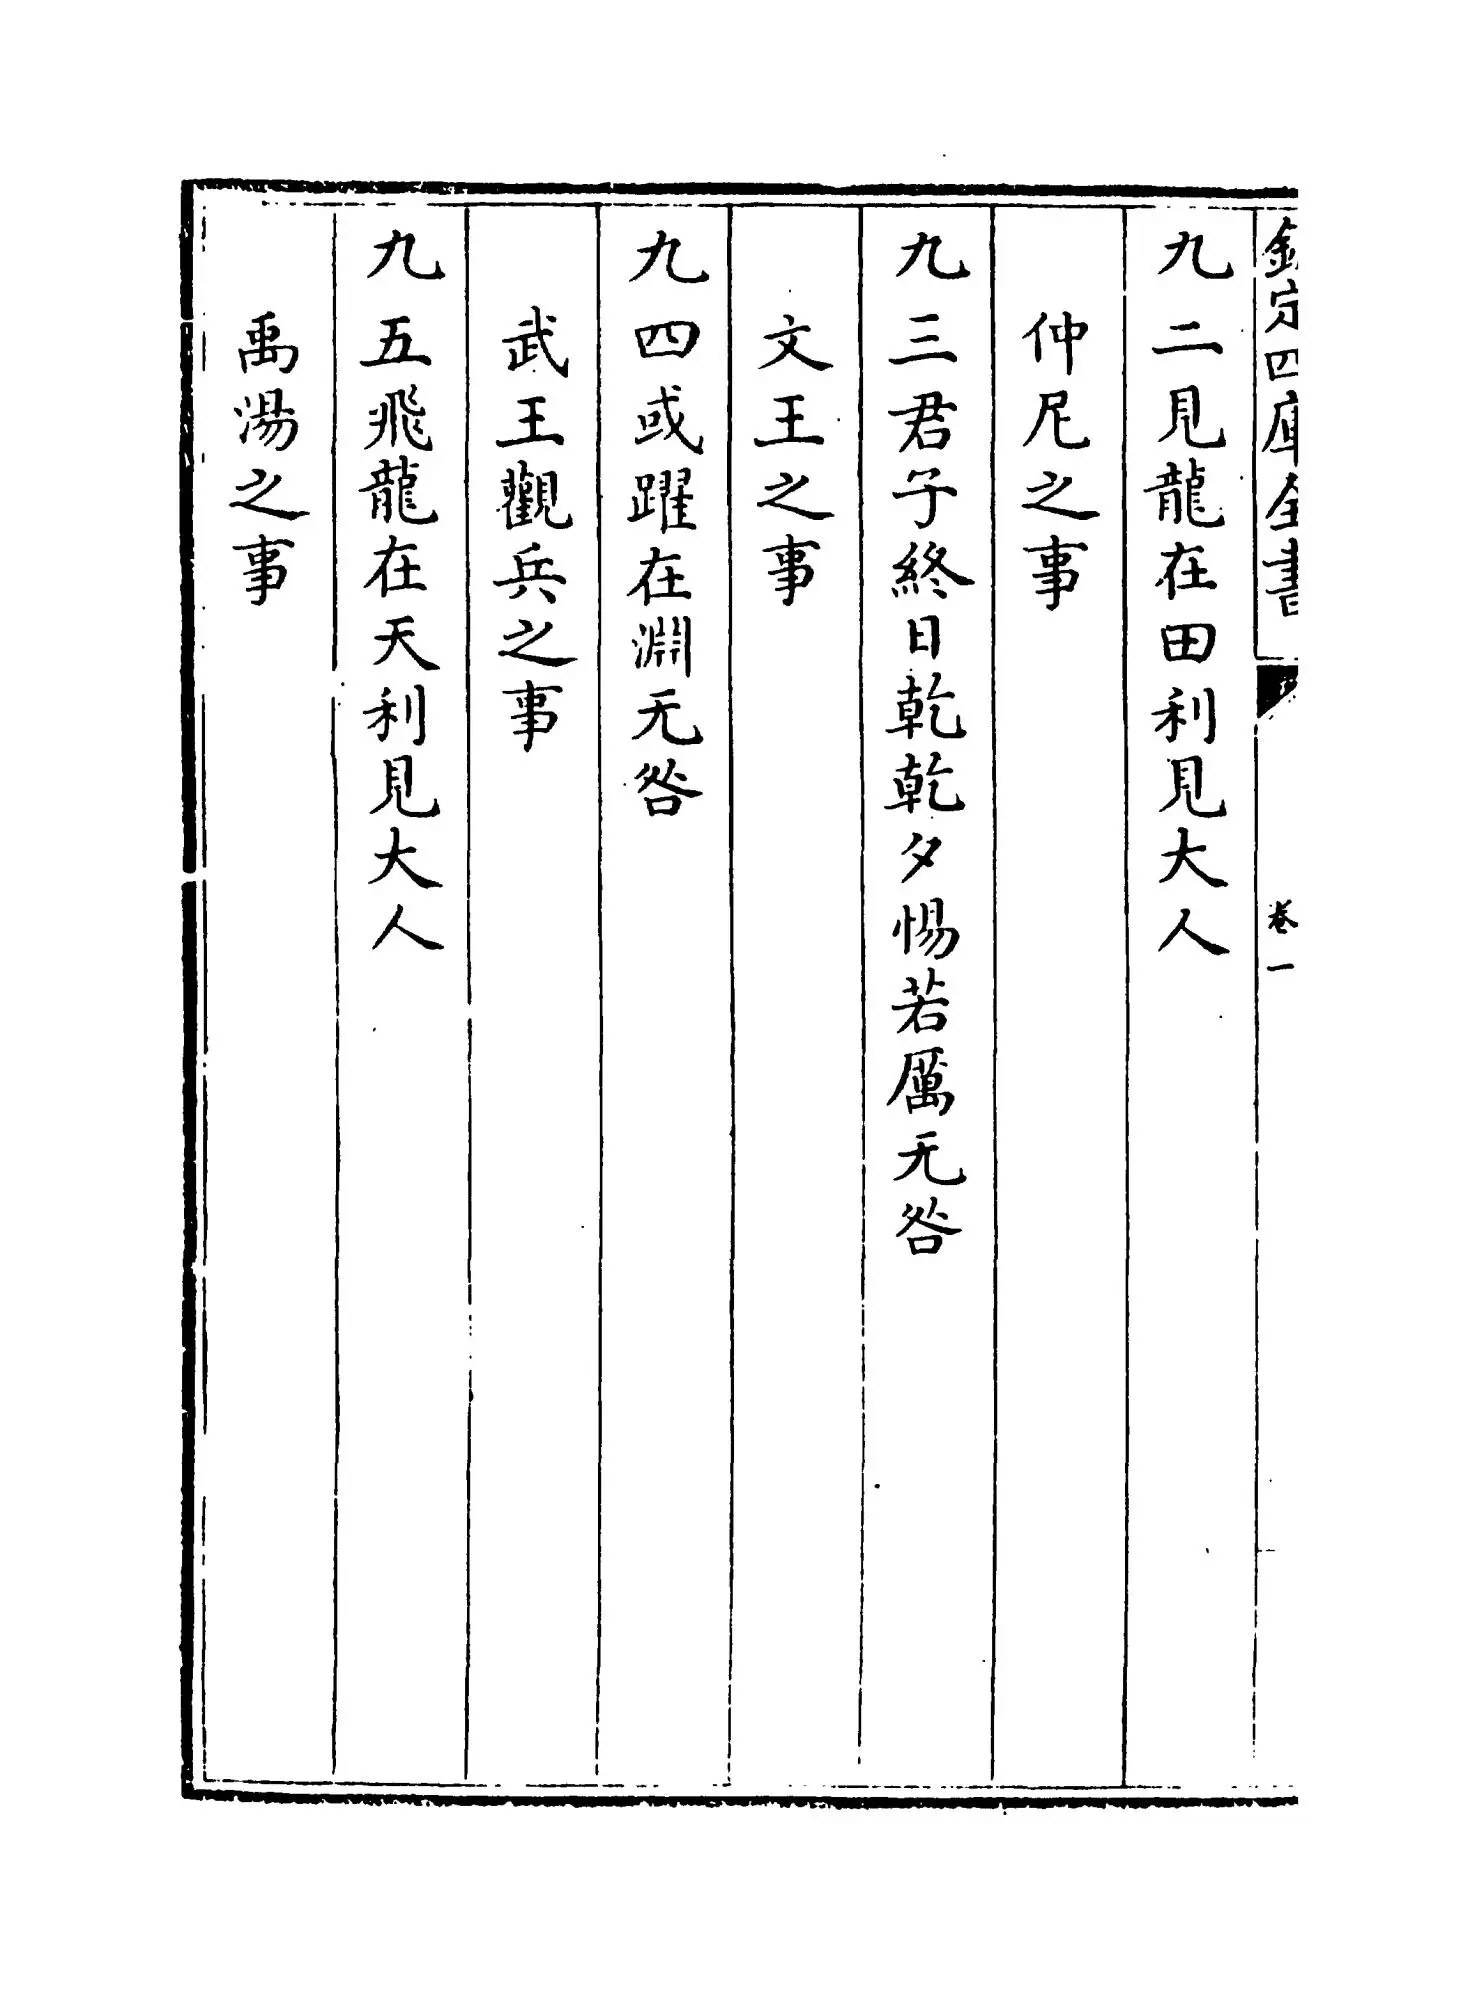 欽定四庫全書
卷一
九二見龍在田利見大人
仲尼之事
九三君子終日乾乾夕惕若厲无咎
文王之事
九四或躍在淵无咎
武王觀兵之事
九五飛龍在天利見大人
禹湯之事